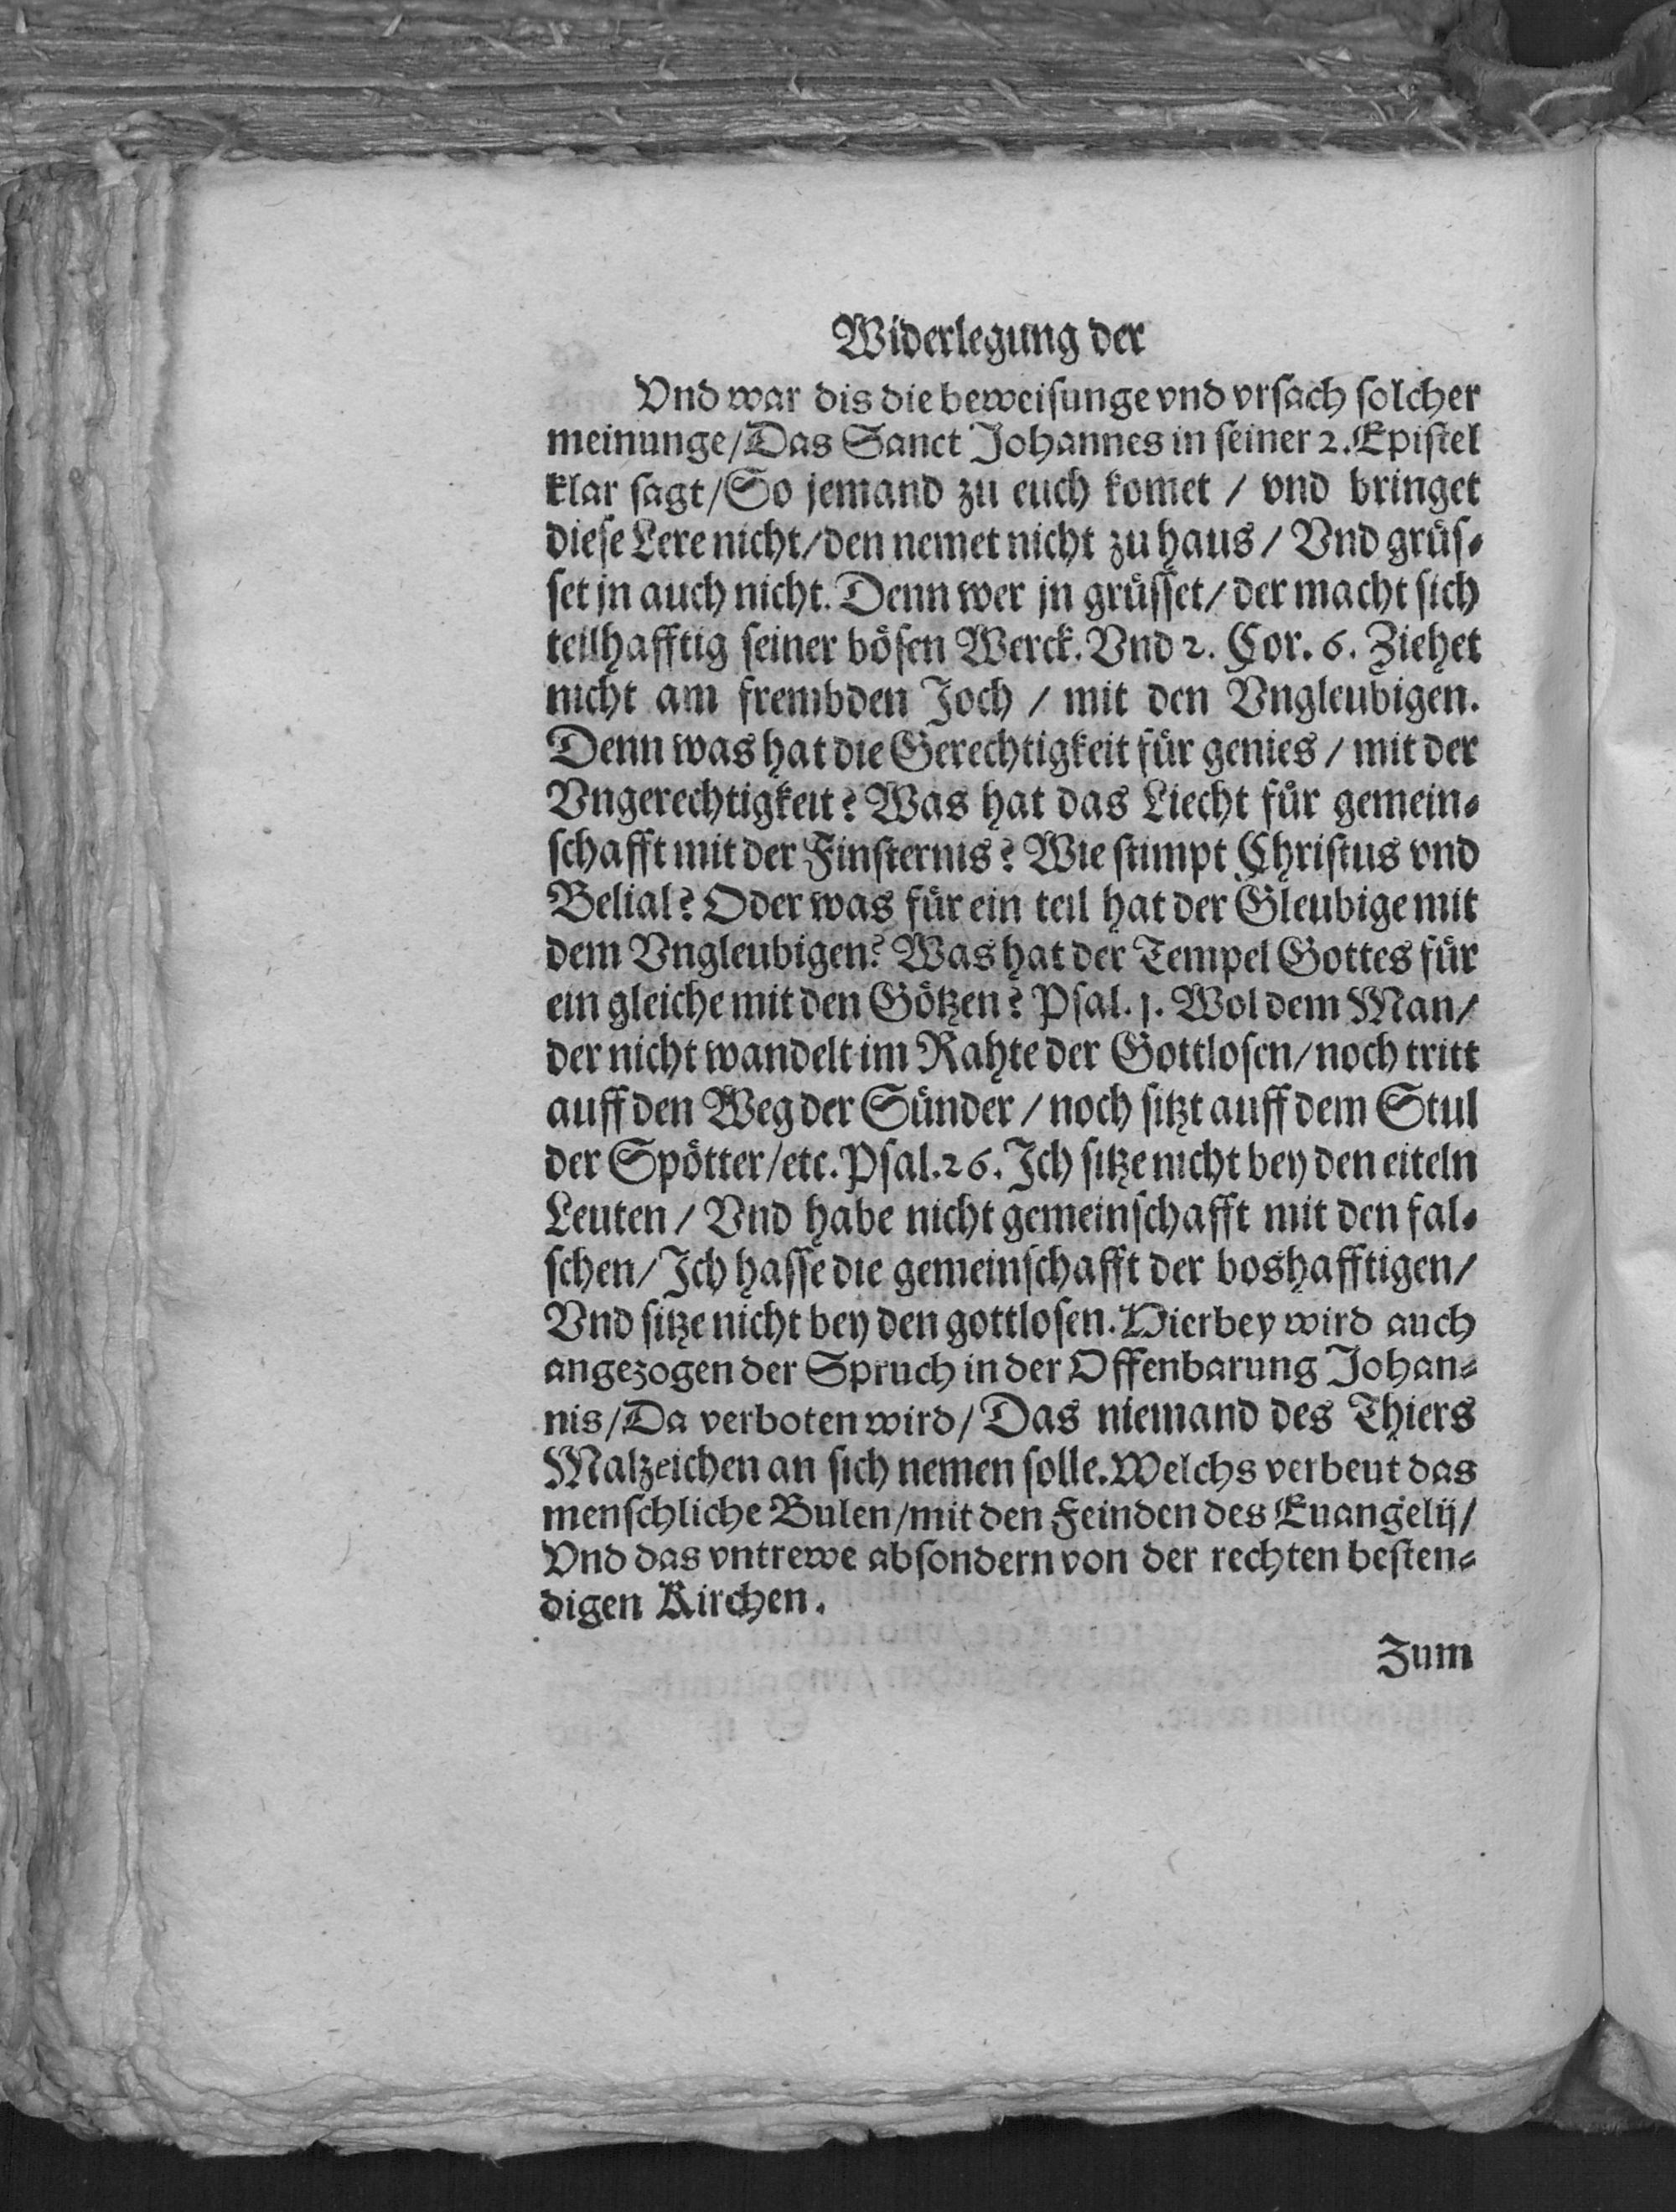 Widerlegung der
Vnd war dis die beweisunge vnd vrsach solcher
meinunge/Das Sanct Johannes in seiner 2. Epistel
klar sagt/So jemand zu euch komet / vnd bringet
diese Lere nicht/den nemet nicht zu haus / Vnd grüs-
set jn auch nicht. Denn wer jn grüsset/ der macht sich
teilhafftig seiner bösen Werck. Vnd 2. Cor. 6. Ziehet
nicht am frembden Joch / mit den Vngleubigen.
Denn was hat die Gerechtigkeit für genies / mit der
Vngerechtigkeit? Was hat das Liecht für gemein-
schafft mit der Finsternis? Wie stimpt Christus vnd
Belial? Oder was für ein teil hat der Gleubige mit
dem Vngleubigen? Was hat der Tempel Gottes für
ein gleiche mit den Götzen? Psal. 1. Wol dem Man/
der nicht wandelt im Rahte der Gottlosen/noch tritt
auff den Weg der Sünder / noch sitzt auff dem Stul
der Spötter/etc. Psal. 26. Ich sitze nicht bey den eiteln
Leuten / Vnd habe nicht gemeinschafft mit den fal-
schen/ Ich hasse die gemeinschafft der boshafftigen/
Vnd sitze nicht bey den gottlosen. Hierbey wird auch
angezogen der Spruch in der Offenbarung Johan-
nis/Da verboten wird/ Das niemand des Thiers
Malzeichen an sich nemen solle. Welchs verbeut das
menschliche Bulen/mit den Feinden des Euangelij/
Vnd das vntrewe absondern von der rechten besten-
digen Kirchen.
Zum